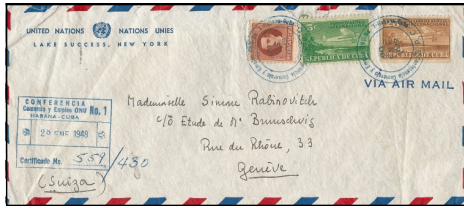 UNITED NATIONS NATIONS UNIES
LAKE SUCCESS, NEW YORK
REPUBLICA DE CUBA
VIA AIR MAIL
CONFERENCIA
Comercio y Empleo ONU No. 1
HABANA-CUBA
29 ENE 1948
Certificado No. 559/430
(Suiza)
Mademoiselle Simone Rabinovitch
c/o Etude de Me Brunschvig
Rue du Rhône, 33
Genève